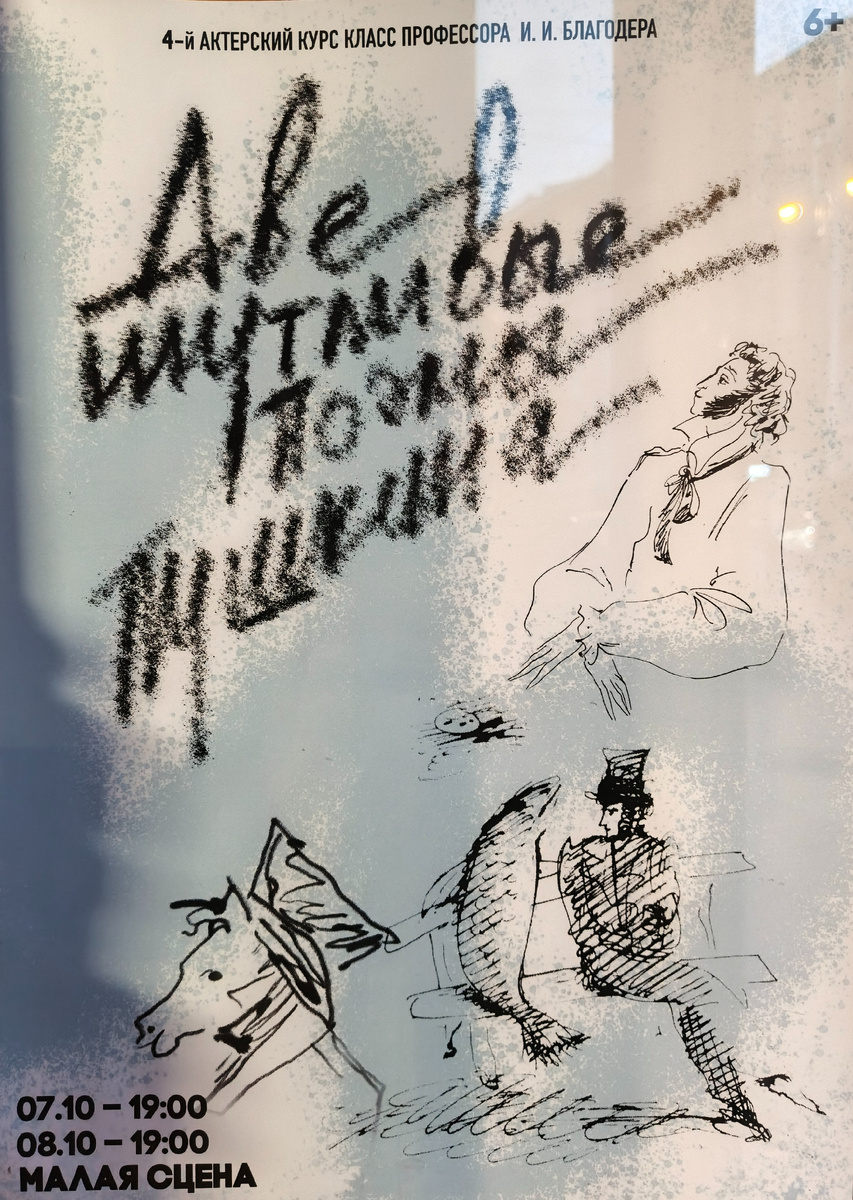 4-й АКТЕРСКИЙ КУРС КЛАСС ПРОФЕССОРА И. И. БЛАГОДЕРА
6+
Две
шутливые
поэмы
Пушкина
07.10 – 19:00
08.10 – 19:00
МАЛАЯ СЦЕНА